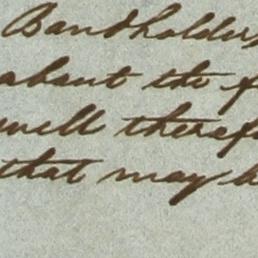 Bandholders
about the f
well theref
that may b